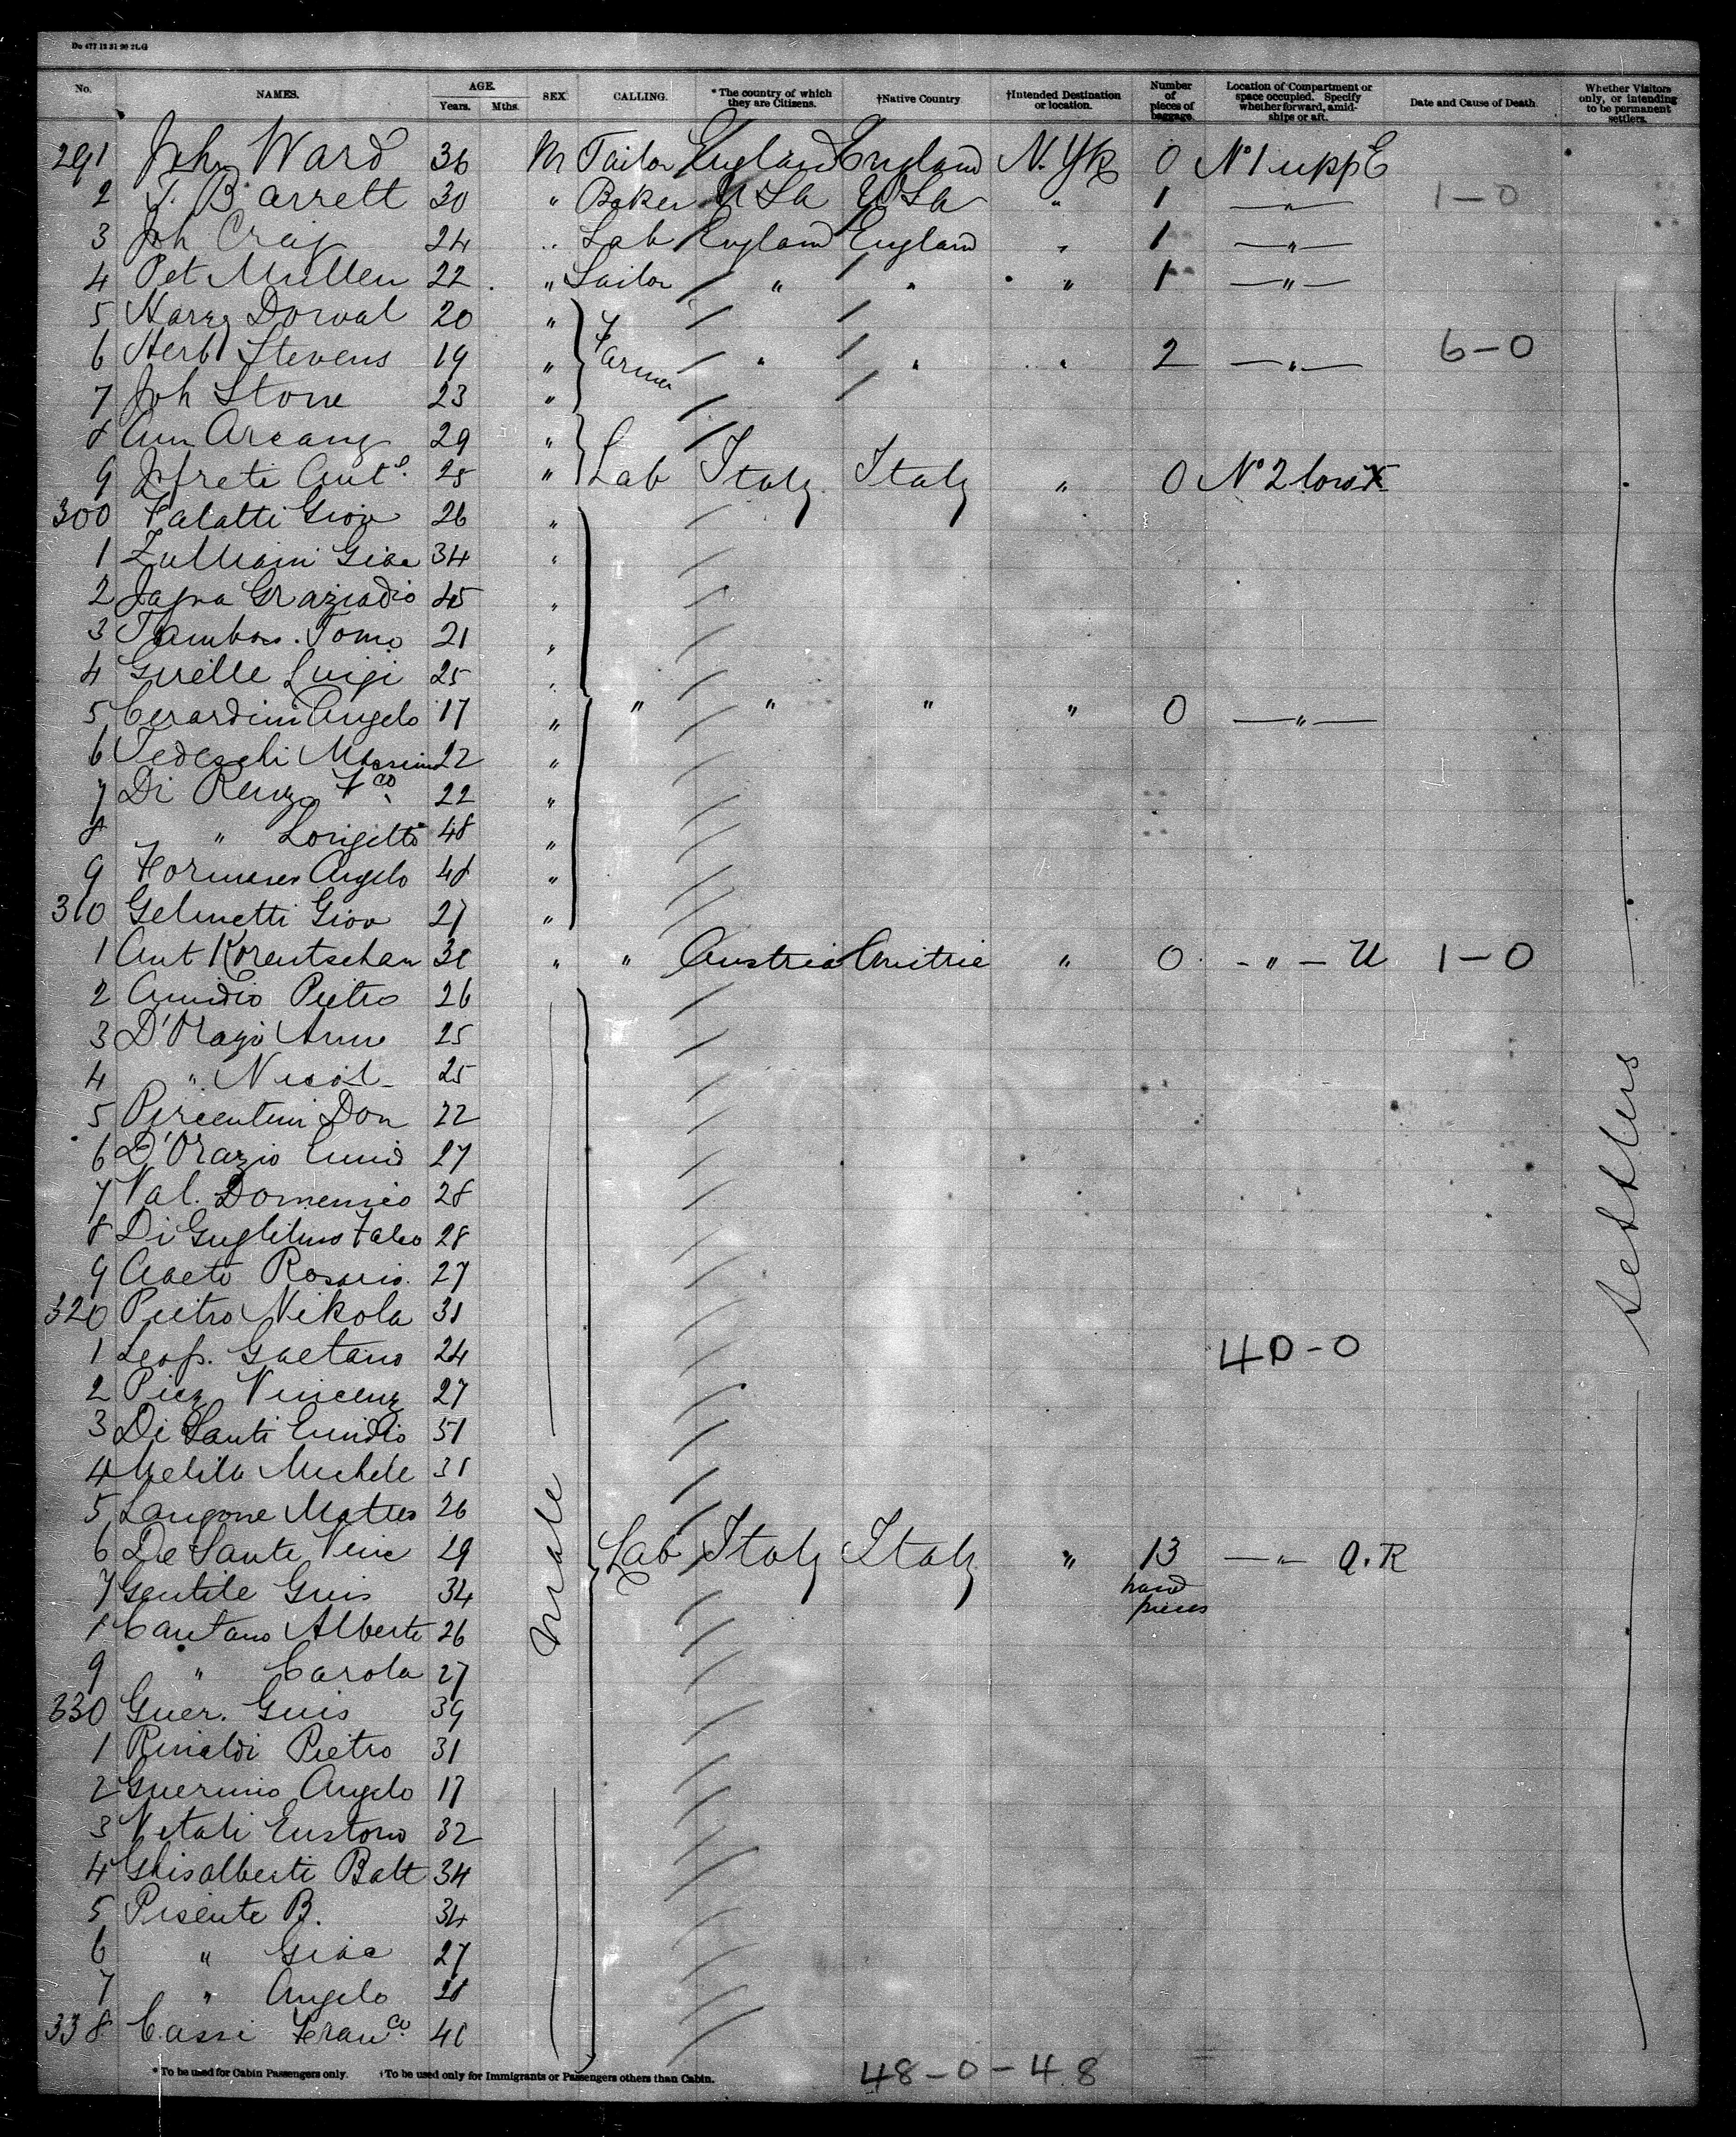 Do 477 12 31 90 2L.G
No. NAMES. AGE. Years. Mths. SEX. CALLING. *The country of which they are Citizens. †Native Country †Intended Destination or location. Number of pieces of baggage. Location of Compartment or space occupied. Specify whether forward, amidships or aft. Date and Cause of Death. Whether Visitors only, or intending to be permanent settlers.
291 John Ward 36 M Tailor England England N. Yk 0 No 1 upp E
2 T. Barrett 30 " Baker U Sta U Sta " 1 — " — 1-0
3 Joh Craig 24 " Lab England England " 1 — " —
4 Pet Mullen 22 " Sailor " " " 1 — " —
5 Harry Dorval 20 "
6 Herb Stevens 19 " Farmer " " " 2 — " — 6-0
7 Joh Stone 23 "
8 Arcang 29 "
9 Ant 25 " Lab Italy Italy " 0 No 2 low
300 Falatti Giov 26 "
1 Zulliani Giac 34 "
2 Graziadio 45 "
3 Tomo 21 "
4 Luigi 25 "
5 Cerardini Angelo 17 " " " " " 0 — " —
6 Tedeschi 22 "
7 Di Renzo Fco 22 "
8 " 48 "
9 Angelo 48 "
310 Gelmetti Giov 27 "
1 Ant Korentschan " " Austria Austria " 0 - " - U 1-0
2 Pietro 26
3 D'Orazi 25
4 " 25
5 Don 22
6 D'Orazio 27
7 Val. Domenico 28
8 Di Guglielmo Falco 28
9 Rosario. 27
320 Pietro Nikola 31
1 Leop. Gaetano 24 40-0
2 Vincenz 27
3 Di Santi Emidio 51
4 Melilla Michele 31
5 Langone 26
6 De Sante Vinc 29 male Lab Italy Italy " 13 hand pieces — " —
7 Gentile Guis 34
8 Cantano Alberto 26
9 " Carola 27
330 Guer. Guis 39
1 Rinaldi Pietro 31
2 Guerino Angelo 17
3 Vitali 32
4 Ghisalberti Batt 34
5 Pisente B. 34
6 " Giac 27
7 " Angelo 28
338 Cassi Franco
settlers
*To be used for Cabin Passengers only. †To be used only for Immigrants or Passengers others than Cabin.
48-0-48